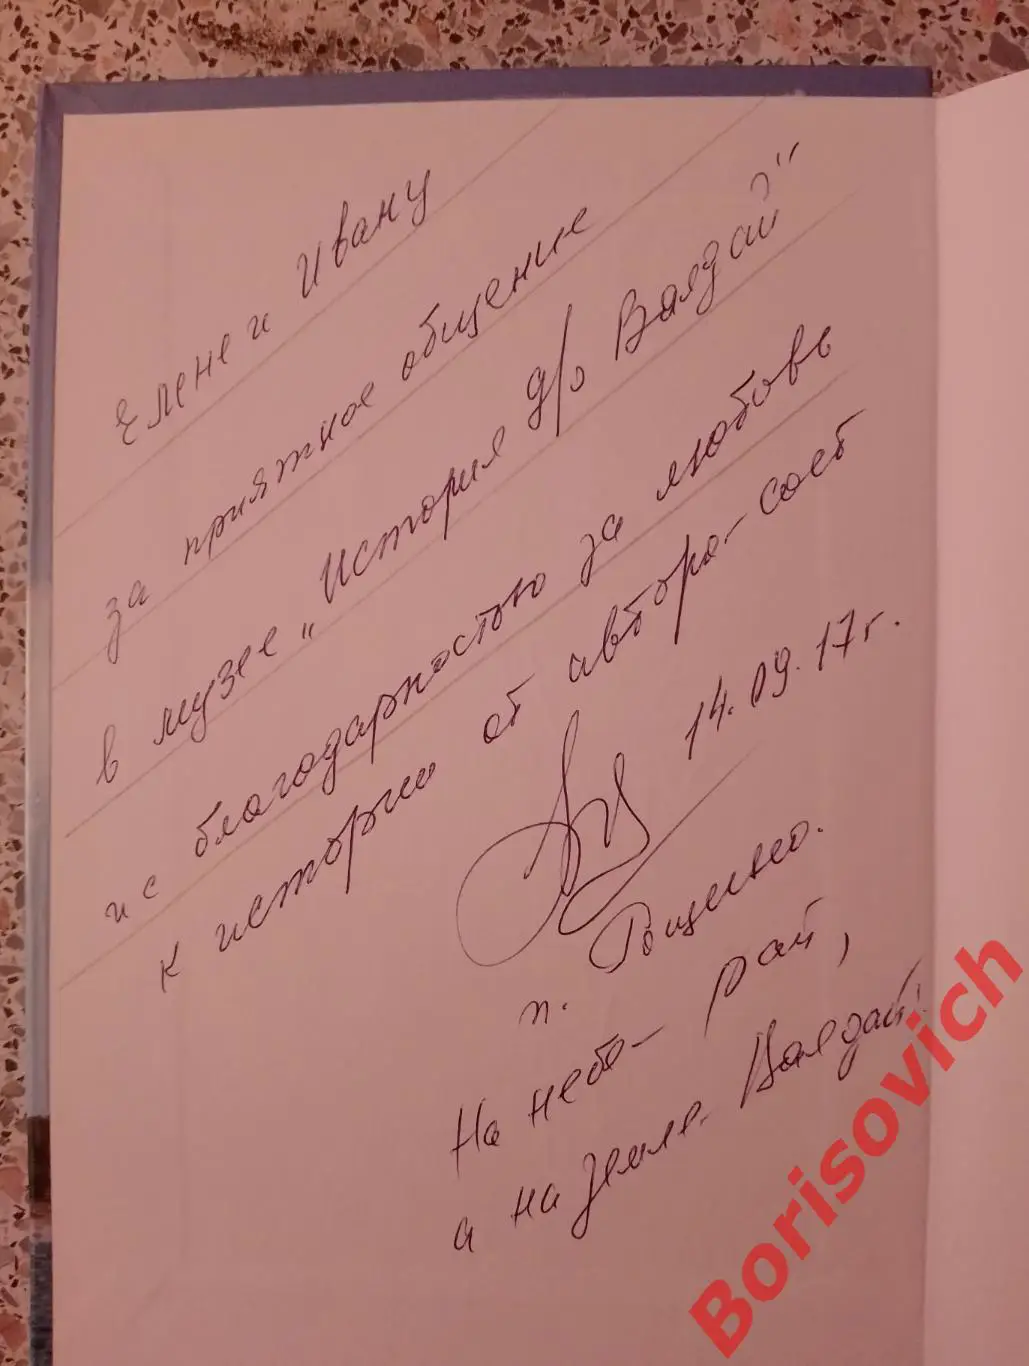 Елене и Ивану
за приятное общение
в музее „История д/о Валдай"
и с благодарностью за любовь
к истории от автора-сост
14.09.17г.
п. Рощино.
На небе- рай,
а на земле- Валдай!
Borisovich